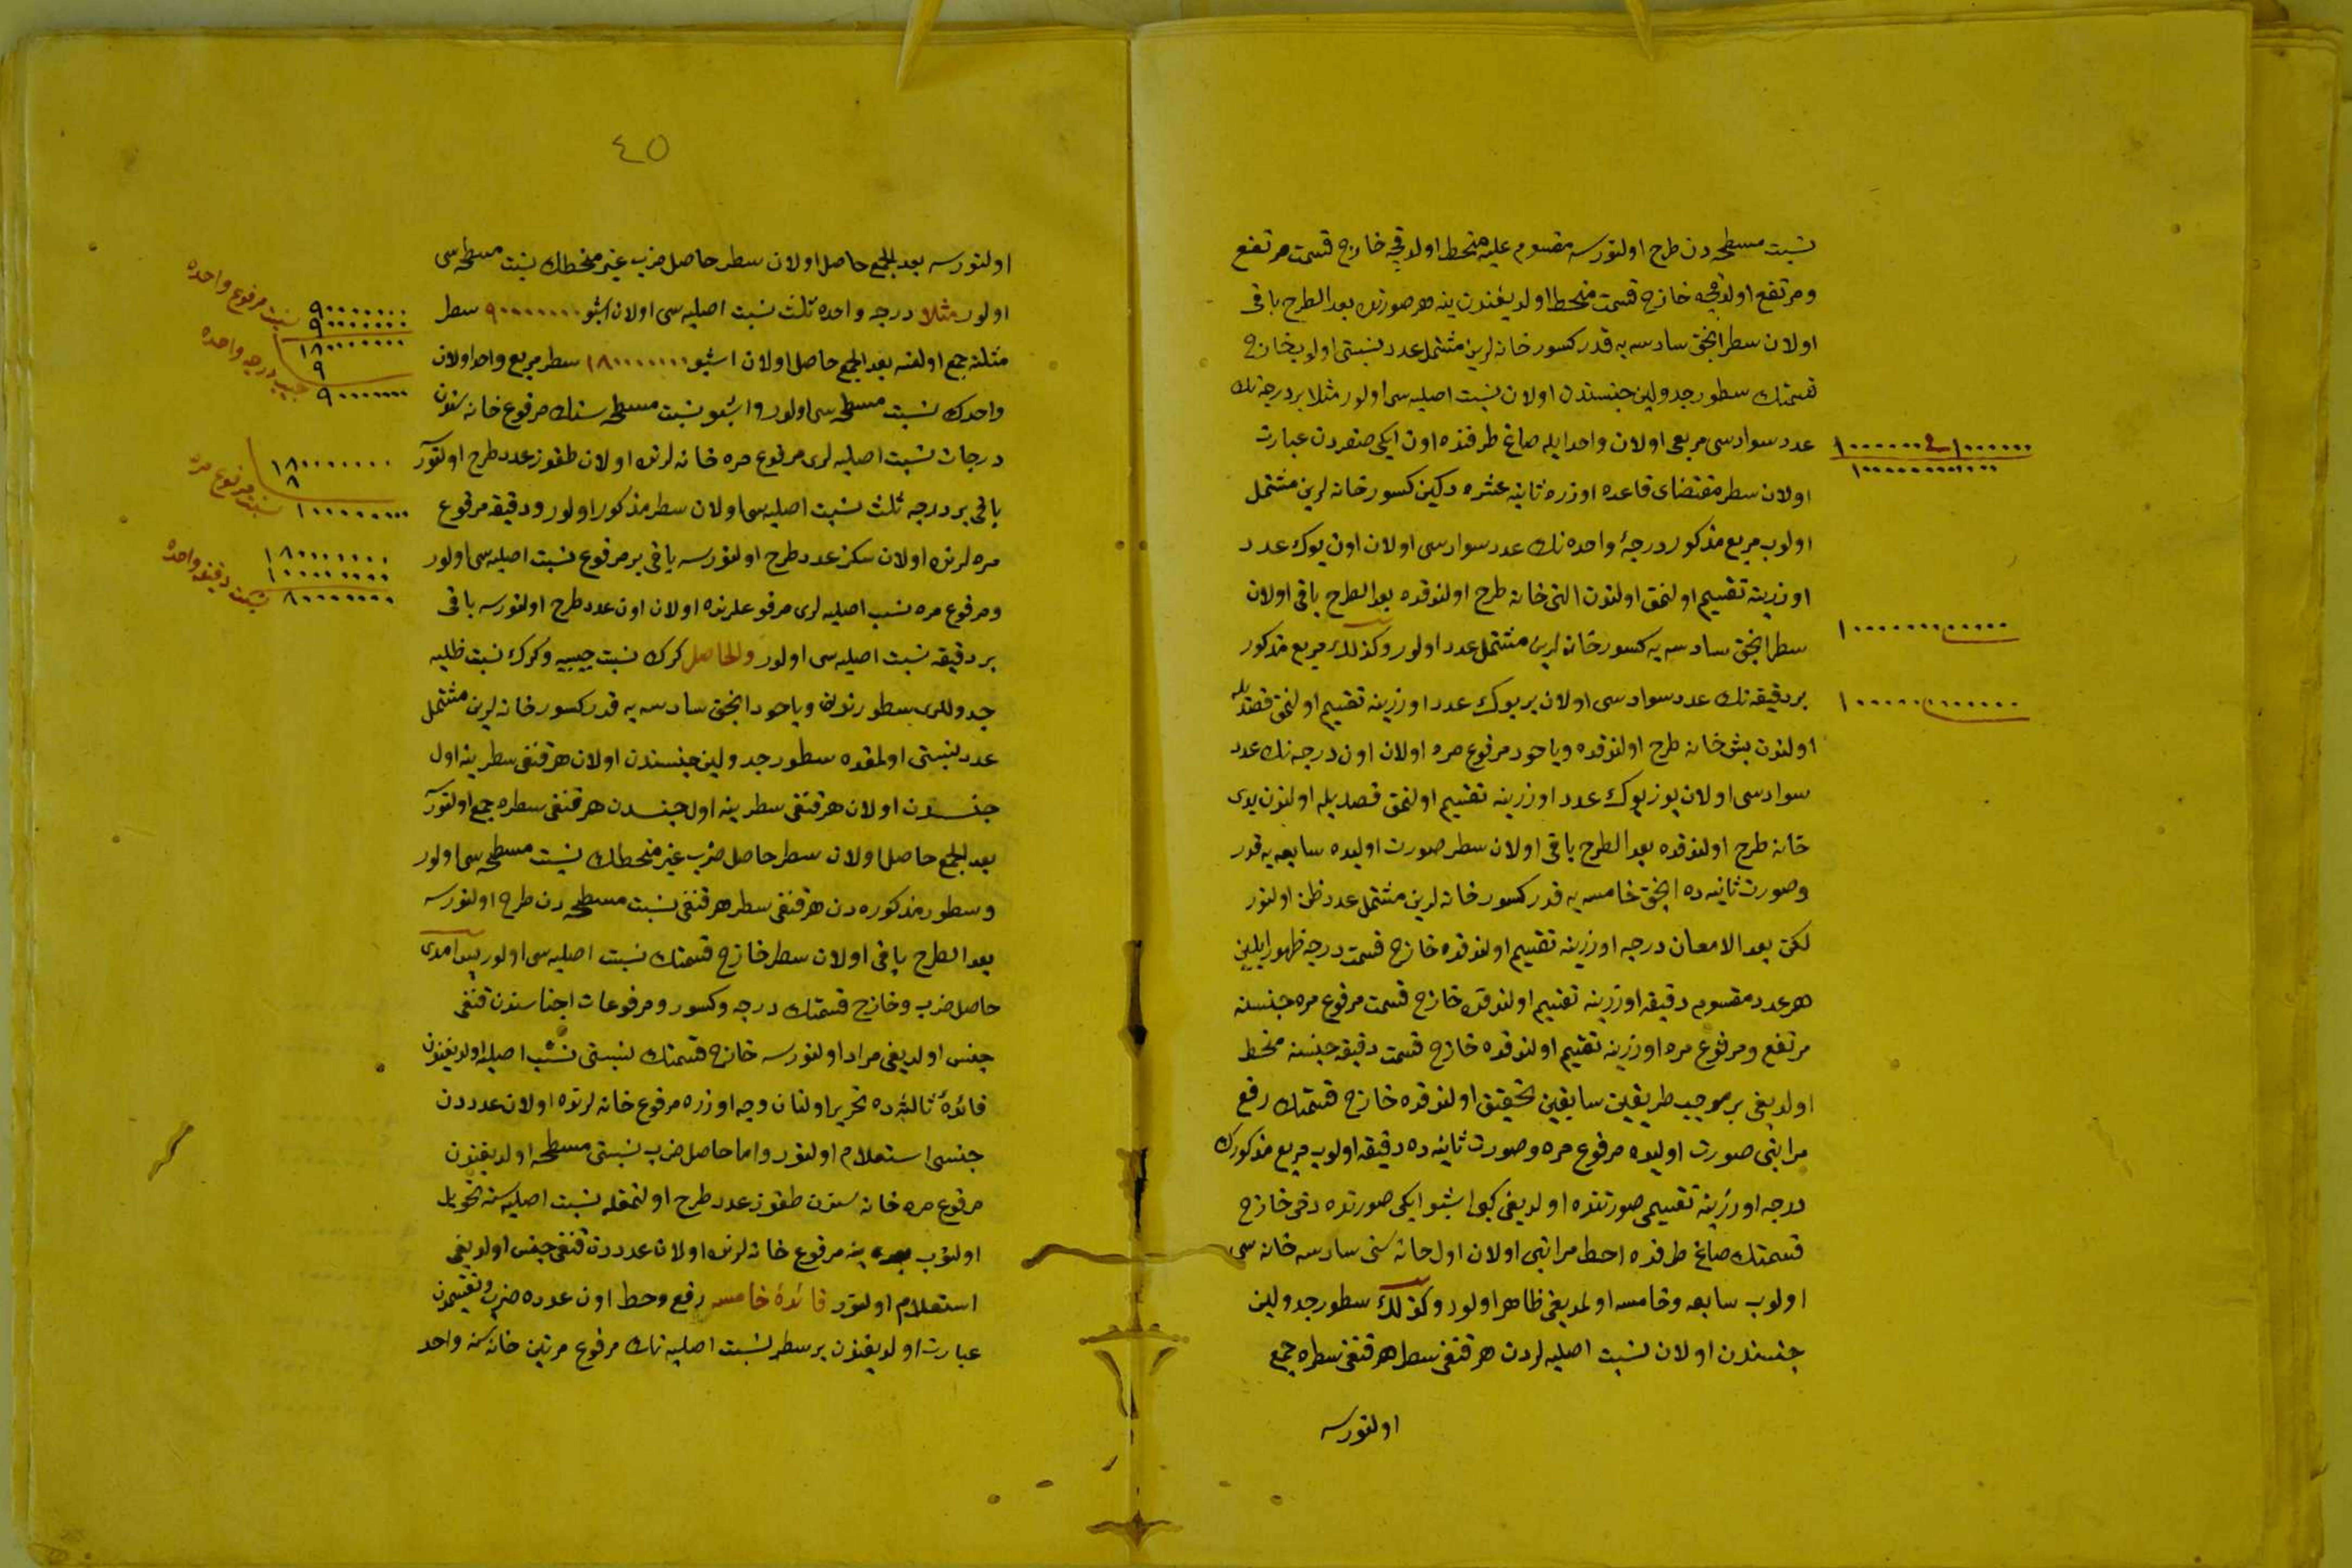 نسبت مسطحه دن طرح اولنورسه مقسوم عليه منحط اولدقچه خارج قسمت مرتفع
ومرتفع اولدقچه خارج قسمت منحط اولديغندن ينه هر صورتده بعد الطرح باقی
اولان سطر انجق سادسه يه قدر كسور خانه لرين مشتمل عدد نسبتی اولوب خارج
قسمتك سطور جدولين جنسندن اولان نسبت اصليه سی اولور مثلا بر درجه نك
عدد سوادسی مربعی اولان واحد ايله صاغ طرفنده اون ايكی صفردن عبارت
اولان سطر مقتضای قاعده اوزره ثانيه عشره دكين كسور خانه لرين مشتمل
اولوب مربع مذكور درجهٔ واحده نك عدد سوادسی اولان اون يوك عدد
اوزرينه تقسيم اولنمق اولنون التی خانه طرح اولندقده بعد الطرح باقی اولان
سطر انجق سادسه يه كسور خانه لرين مشتمل عدد اولور وكذلك مربع مذكور
بر دقيقه نك عدد سوادسی اولان بر يوك عدد اوزرينه تقسيم اولنمق قصديله
اولنون بش خانه طرح اولندقده وياخود مرفوع مره اولان اون درجه نك عدد
سوادسی اولان يوز يوك عدد اوزرينه تقسيم اولنمق قصديله اولنون يدی
خانه طرح اولندقده بعد الطرح باقی اولان سطر صورت اوليده سابعه يه قدر
وصورت ثانيه ده انجق خامسه يه قدر كسور خانه لرين مشتمل عدد ظن اولنور
لكن بعد الامعان درجه اوزرينه تقسيم اولندقده خارج قسمت درجه ظهور ايلين
هر عدد مقسوم دقيقه اوزرينه تقسيم اولندقده خارج قسمت مرفوع مره جنسنه
مرتفع ومرفوع مره اوزرينه تقسيم اولندقده خارج قسمت دقيقه جنسنه منحط
اولديغی بر موجب طريقين سابقين تحقيق اولندقده خارج قسمتك رفع
مراتبی صورت اوليده مرفوع مره وصورت ثانيه ده دقيقه اولوب مربع مذكورك
درجه اوزرينه تقسيمی صورتنده اولديغی كبی اشبو ايكی صورتده دخی خارج
قسمتك صاغ طرفنده احط مراتبی اولان اول خانه سی سادسه خانه سی
اولوب سابعه وخامسه اولمديغی ظاهر اولور وكذلك سطور جدولين
جنسندن اولان نسبت اصليه لردن هر قنغی سطر هر قنغی سطره جمع
اولنورسه
١٠٠٠٠٠٠ فی ١٠٠٠٠٠٠
١٠٠٠٠٠٠٠٠٠٠٠٠
١٠٠٠٠٠٠٠٠٠٠٠٠
١٠٠٠٠٠٠٠٠٠٠٠٠
٤٥
اولنورسه بعد الجمع حاصل اولان سطر حاصل ضرب غير منحطك نسبت مسطحه سی
اولور مثلا درجه واحده ثلث نسبت اصليه سی اولان اشبو ٩٠٠٠٠٠٠٠ سطر
مثلنه جمع اولنسه بعد الجمع حاصل اولان اشبو ١٨٠٠٠٠٠٠٠ سطر مربع واحد اولان
واحدك نسبت مسطحه سی اولور واشبو نسبت مسطحه سنك مرفوع خانه سندن
درجات نسبت اصليه لری مرفوع مره خانه لرنده اولان طقوز عدد طرح اولنور
باقی بر درجه ثلث نسبت اصليه سی اولان سطر مذكور اولور ودقيقه مرفوع
مره لرنده اولان سكز عدد طرح اولنورسه باقی بر مرفوع نسبت اصليه سی اولور
ومرفوع مره نسب اصليه لری مرفوعلرنده اولان اون عدد طرح اولنورسه باقی
بر دقيقه نسبت اصليه سی اولور والحاصل كرك نسبت جيبيه وكرك نسبت ظليه
جدوللری سطورندن وياخود انجق سادسه يه قدر كسور خانه لرين مشتمل
عدد نسبتی اولمقده سطور جدولين جنسندن اولان هر قنغی سطر ينه اول
جنسدن اولان هر قنغی سطر ينه اول جنسدن هر قنغی سطره جمع اولنور
بعد الجمع حاصل اولان سطر حاصل ضرب غير منحطك نسبت مسطحه سی اولور
وسطور مذكوره دن هر قنغی سطر هر قنغی نسبت مسطحه دن طرح اولنورسه
بعد الطرح باقی اولان سطر خارج قسمتك نسبت اصليه سی اولور
حاصل ضرب وخارج قسمتك درجه وكسور ومرفوعات اجناسندن قنغی
جنس اولديغی مراد اولنورسه خارج قسمتك نسبتی نسب اصليه اولديغندن
فائدهٔ ثالثه ده تحرير اولنان وجه اوزره مرفوع خانه لرنده اولان عدددن
جنسی استعلام اولنور واما حاصل ضرب نسبتی مسطحه اولديغندن
مرفوع مره خانه سندن طقوز عدد طرح اولنمغله نسبت اصليه سنه تحويل
اولنوب ينه مرفوع خانه لرنده اولان عدددن قنغی جنس اولديغی
استعلام اولنور فائدهٔ خامسه رفع وحط اون عدده ضرب وتقسيمدن
عبارت اولديغندن بر سطر نسبت اصليه نك مرفوع مرتين خانه سنه واحد
٩٠٠٠٠٠٠٠ نسبت مرفوع واحده
٩٠٠٠٠٠٠٠
١٨٠٠٠٠٠٠٠٠
٩
٩٠٠٠٠٠٠٠ درجه واحده
١٨٠٠٠٠٠٠٠٠
٨
١٠٠٠٠٠٠٠٠٠ نسبت مرفوع مره
١٨٠٠٠٠٠٠٠٠
١٠٠٠٠٠٠٠٠٠
٨٠٠٠٠٠٠٠٠ نسبت دقيقه واحده